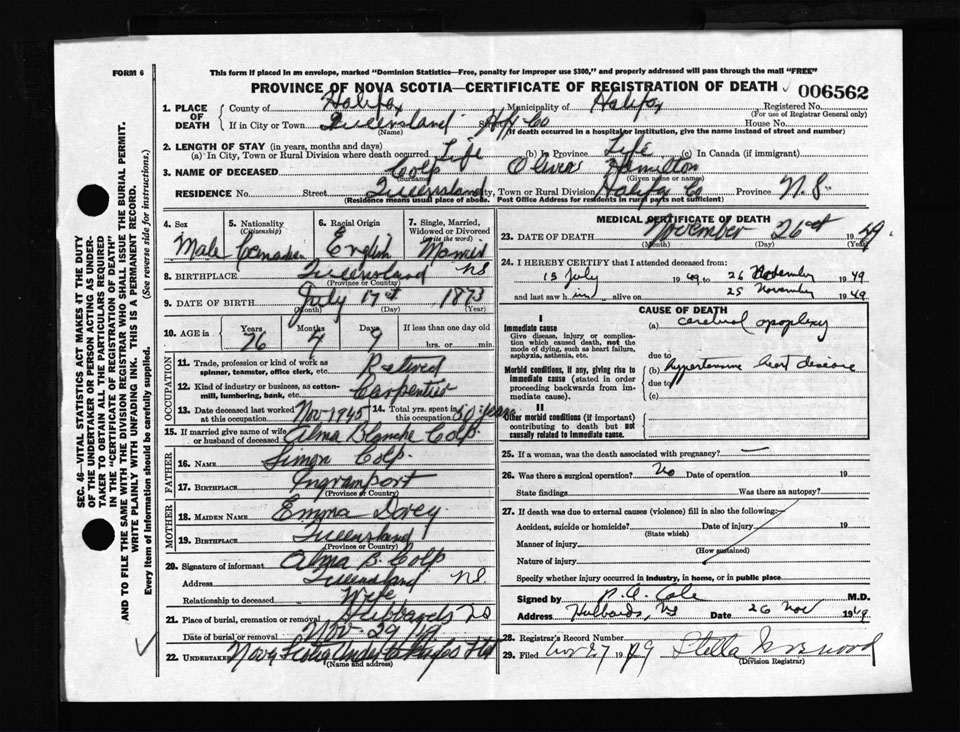 FORM 6
This form if placed in an envelope, marked "Dominion Statistics—Free, penalty for improper use $300," and properly addressed will pass through the mail "FREE"
PROVINCE OF NOVA SCOTIA—CERTIFICATE OF REGISTRATION OF DEATH 006562
1. PLACE OF DEATH
County of Halifax Municipality of Halifax Registered No.
(For use of Registrar General only)
If in City or Town Queensland Hfx Co House No.
(Name) (If death occurred in a hospital or institution, give the name instead of street and number)
2. LENGTH OF STAY (in years, months and days)
(a) In City, Town or Rural Division where death occurred Life (b) In Province Life (c) In Canada (if immigrant)
3. NAME OF DECEASED Colp Oliver Hamilton
(Surname) (Given name or names)
RESIDENCE No. Street Queensland City, Town or Rural Division Halifax Co Province N.S.
(Residence means usual place of abode. Post Office Address for residents in rural parts not sufficient)
4. Sex Male
5. Nationality (Citizenship) Canadian
6. Racial Origin English
7. Single, Married, Widowed or Divorced (write the word)
8. BIRTHPLACE Queensland NS
(Province or Country)
9. DATE OF BIRTH July 17th 1873
(Month) (Day) (Year)
10. AGE in Years Months Days If less than one day old
76 4 9 hrs. or min.
OCCUPATION
11. Trade, profession or kind of work as spinner, teamster, office clerk, etc. Retired
12. Kind of industry or business, as cotton-mill, lumbering, bank, etc. Carpenter
13. Date deceased last worked at this occupation Nov-1945 14. Total yrs. spent in this occupation 50 years
15. If married give name of wife or husband of deceased Alma Blanche Colp.
FATHER
16. NAME Simon Colp.
17. BIRTHPLACE Ingramport
(Province or Country)
MOTHER
18. MAIDEN NAME Emma Dorey
19. BIRTHPLACE Queensland
(Province or Country)
20. Signature of informant Alma B. Colp
Address Queensland NS.
Relationship to deceased Wife
21. Place of burial, cremation or removal Hubbards NS
Date of burial or removal Nov-29
22. UNDERTAKER Nova Scotia Undertakers
(Name and address)
MEDICAL CERTIFICATE OF DEATH
23. DATE OF DEATH November 26 1949
(Month) (Day) (Year)
24. I HEREBY CERTIFY that I attended deceased from:
15 July 1949 to 26 November 1949
and last saw him alive on 25 November 1949
CAUSE OF DEATH
I
Immediate cause
Give disease, injury or complication which caused death, not the mode of dying, such as heart failure, asphyxia, asthenia, etc.
(a) cerebral apoplexy
due to
Morbid conditions, if any, giving rise to immediate cause (stated in order proceeding backwards from immediate cause).
(b) hypertensive heart disease
due to
(c)
II
Other morbid conditions (if important) contributing to death but not causally related to immediate cause.
25. If a woman, was the death associated with pregnancy? —
26. Was there a surgical operation? No Date of operation 19
State findings Was there an autopsy?
27. If death was due to external causes (violence) fill in also the following:—
Accident, suicide or homicide? Date of injury 19
(State which)
Manner of injury
(How sustained)
Nature of injury
Specify whether injury occurred in industry, in home, or in public place
Signed by M.D.
Address Hubbards, NS Date 26 Nov 1949
28. Registrar's Record Number
29. Filed Nov 27 1949 Stella
(Division Registrar)
SEC. 46—VITAL STATISTICS ACT MAKES IT THE DUTY
OF THE UNDERTAKER OR PERSON ACTING AS UNDER-
TAKER TO OBTAIN ALL THE PARTICULARS REQUIRED
IN THE "CERTIFICATE OF REGISTRATION OF DEATH"
AND TO FILE THE SAME WITH THE DIVISION REGISTRAR WHO SHALL ISSUE THE BURIAL PERMIT.
WRITE PLAINLY WITH UNFADING INK. THIS IS A PERMANENT RECORD.
Every item of information should be carefully supplied. (See reverse side for instructions.)